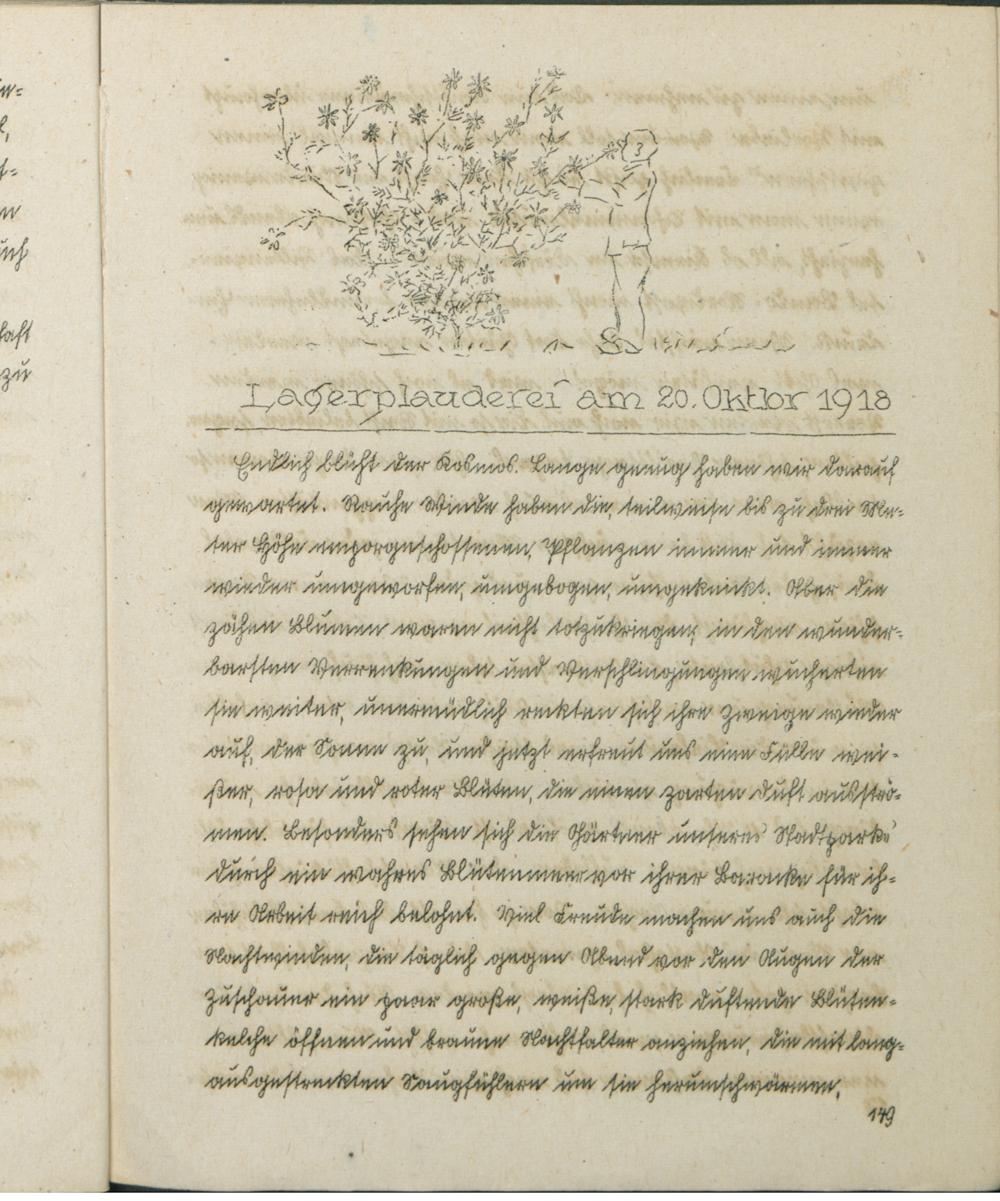 Lagerplauderei am 20. Oktbr 1918
Endlich blüht der Kosmos. Lange genug haben wir darauf
gewartet. Rauhe Winde haben die, teilweise bis zu drei Me-
ter Höhe emporgeschossenen, Pflanzen immer und immer
wieder umgeworfen, umgebogen, umgeknickt. Aber die
zähen Blumen waren nicht totzukriegen; in den wunder-
barsten Verrenkungen und Verschlingungen wucherten
sie weiter, unermüdlich reckten sich ihre Zweige wieder
auf, der Sonne zu, und jetzt erfreut uns eine Fülle wei-
ßer, rosa und roter Blüten, die einen zarten Duft ausströ-
men. Besonders sehen sich die Gärtner unseres Stadtparks
durch ein wahres Blütenmeer vor ihrer Baracke für ih-
re Arbeit reich belohnt. Viel Freude machen uns auch die
Nachtwinden, die täglich gegen Abend vor den Augen der
Zuschauer ein paar große, weiße, stark duftende Blüten-
kelche öffnen und braune Nachtfalter anziehen, die mit lang-
ausgestreckten Saugfühlern um sie herumschwärmen.
149